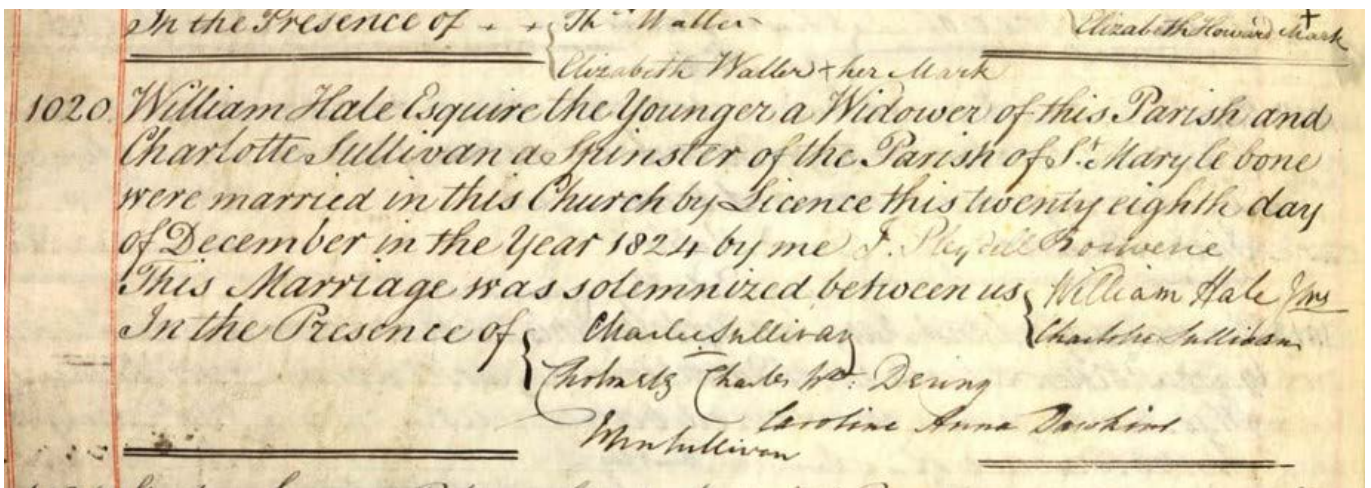 In the Presence of Thos. Waller Elizabeth Howard Mark
Elizabeth Waller + her Mark
1020 William Hale Esquire the Younger a Widower of this Parish and
Charlotte Sullivan a Spinster of the Parish of St. Mary le bone
were married in this Church by Licence this twenty eighth day
of December in the Year 1824 by me J. Pleydell Bouverie
This Marriage was solemnized between us William Hale Junr
In the Presence of Charles Sullivan Charlotte Sullivan
Charles Wm. Dering
Caroline Anna Dawkins
Sullivan